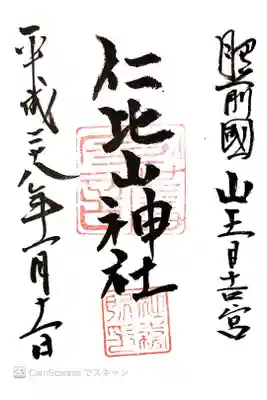 肥前國 山王日吉宮
仁比山神社
平成二十八年
社務所印
CamScanner でスキャン